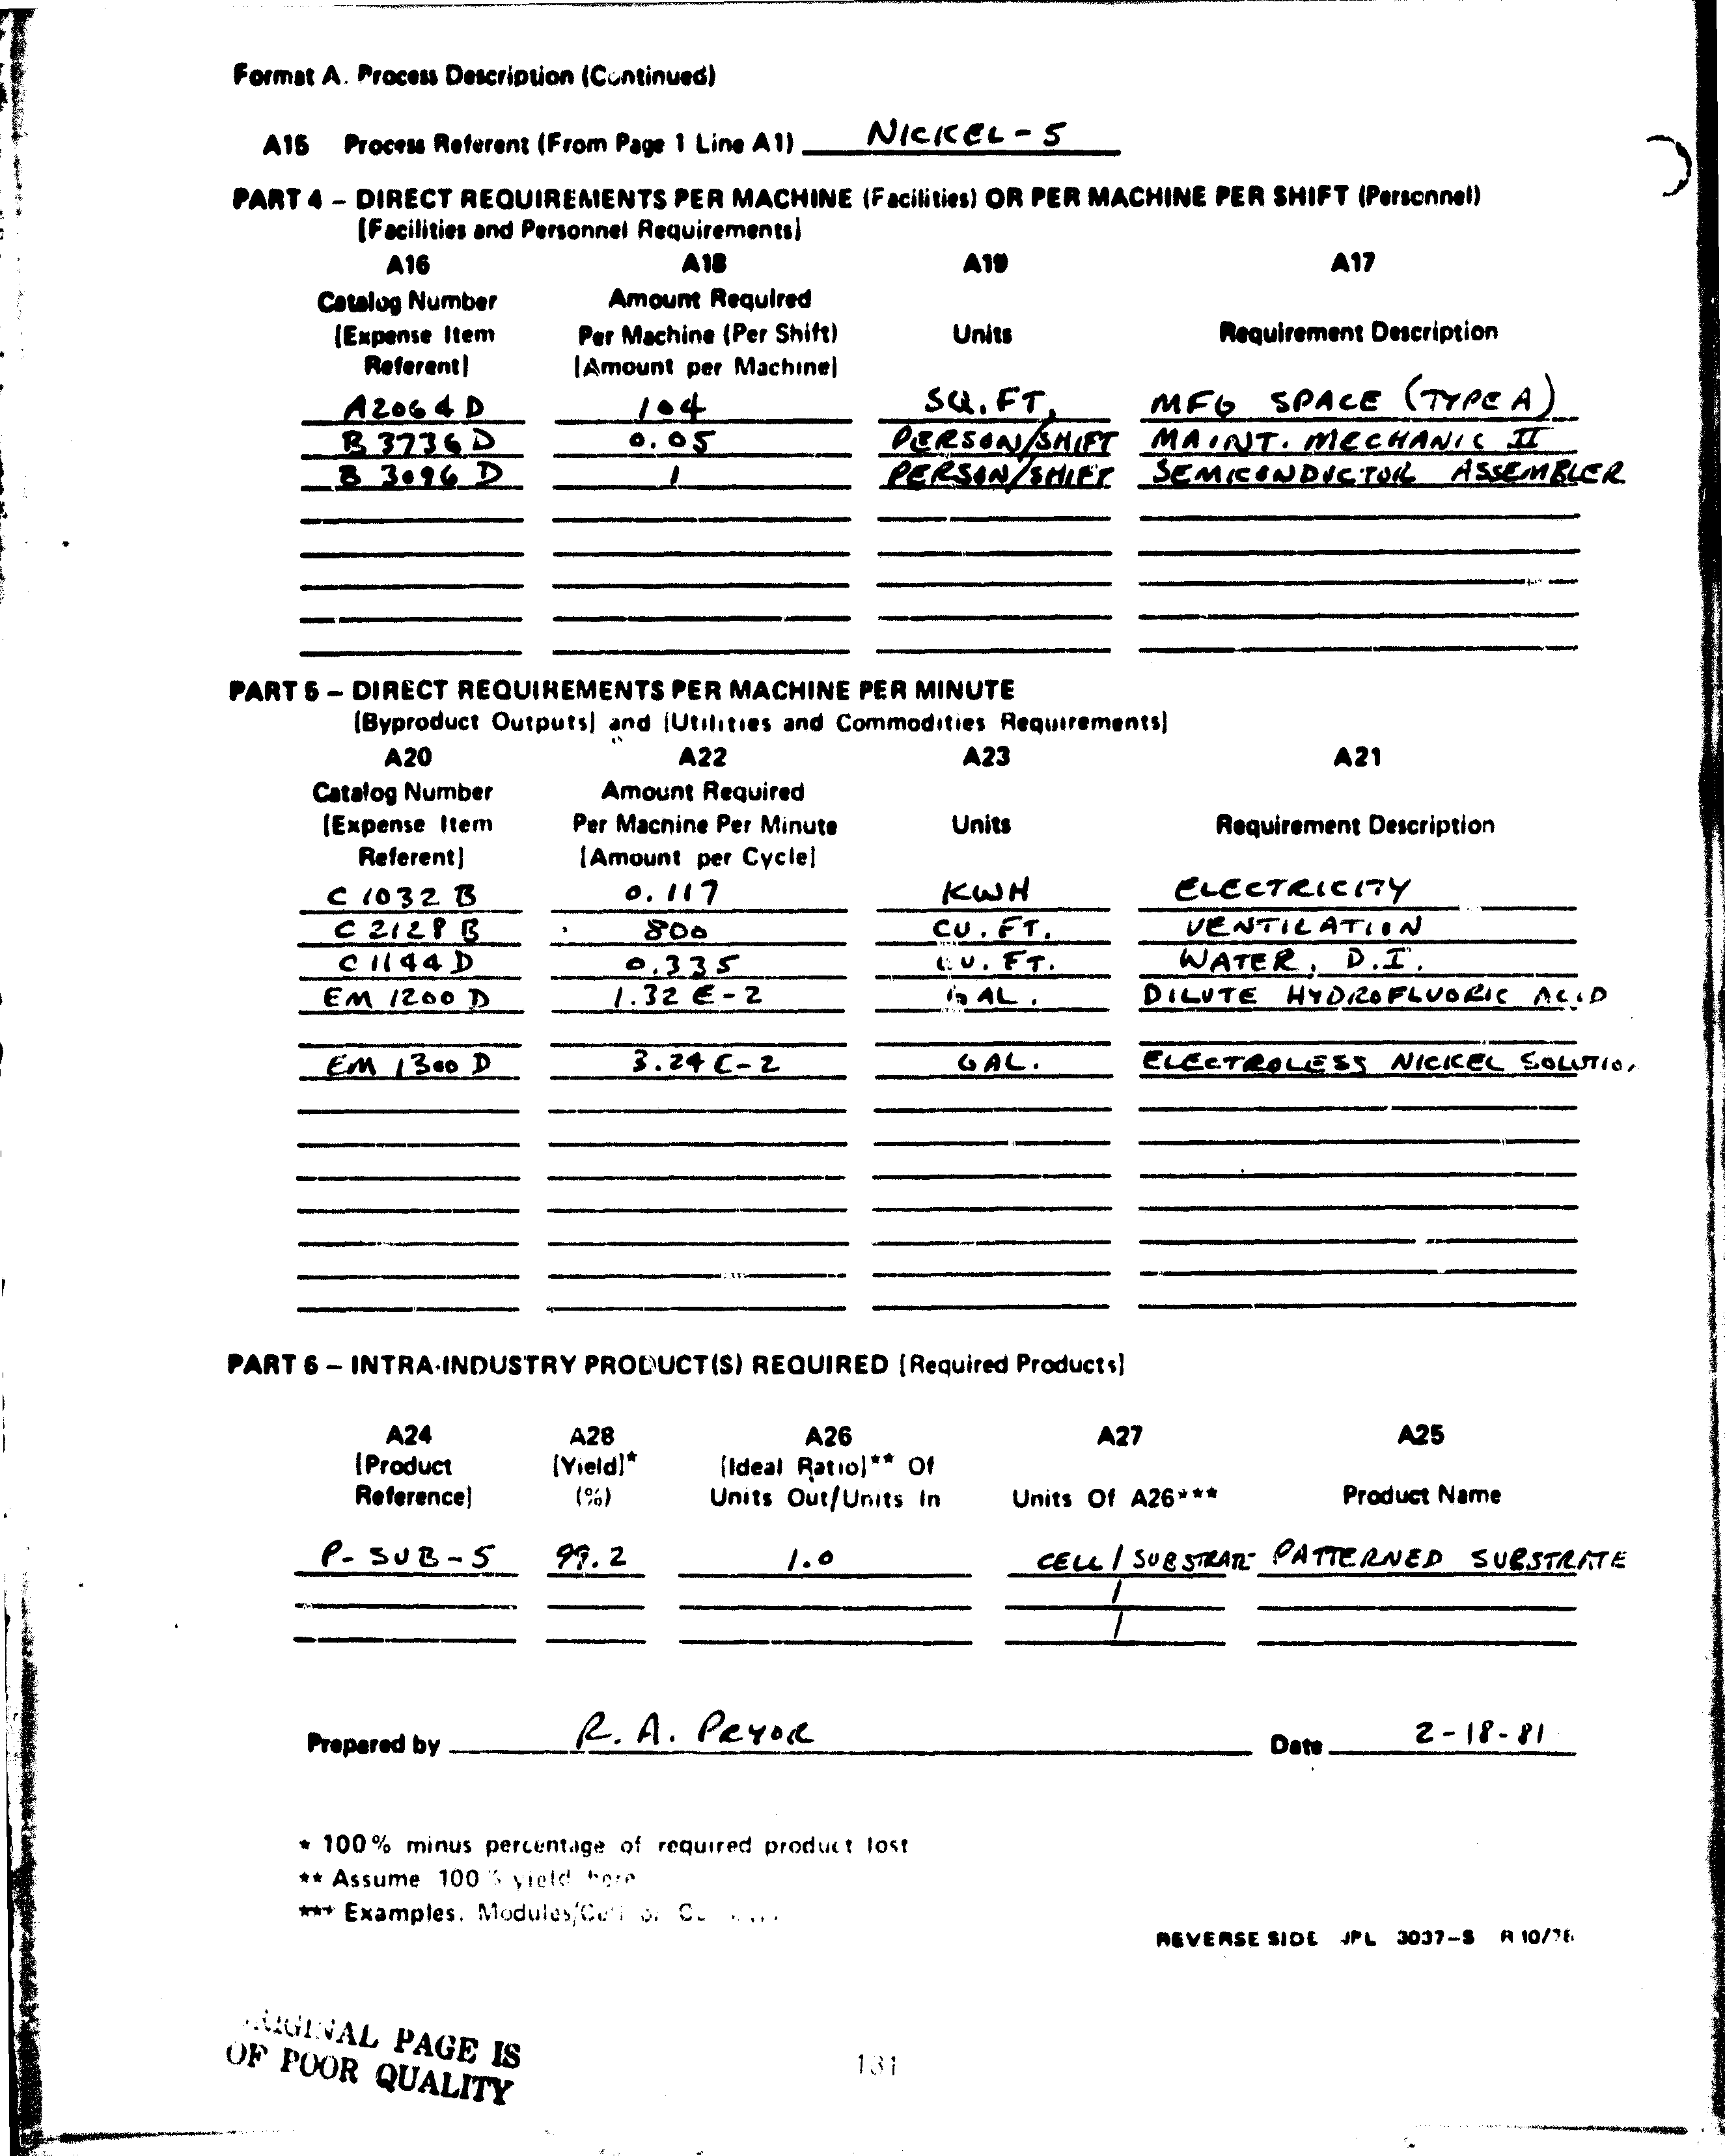 Format A. Process Description (Continued)
A15 Process Referent (From Page 1 Line A1) NICKEL-5
PART 4 – DIRECT REQUIREMENTS PER MACHINE (Facilities) OR PER MACHINE PER SHIFT (Personnel)
[Facilities and Personnel Requirements]
A16 A18 A19 A17
Catalog Number Amount Required
[Expense Item Per Machine (Per Shift) Units Requirement Description
Referent] [Amount per Machine]
A2064D 104 SQ. FT. MFG SPACE (TYPE A)
B3736D 0.05 PERSON/SHIFT MAINT. MECHANIC II
B 3096 D 1 PERSON/SHIFT SEMICONDUCTOR ASSEMBLER
PART 5 – DIRECT REQUIREMENTS PER MACHINE PER MINUTE
[Byproduct Outputs] and [Utilities and Commodities Requirements]
A20 A22 A23 A21
Catalog Number Amount Required
[Expense Item Per Machine Per Minute Units Requirement Description
Referent] [Amount per Cycle]
C 1032 B 0.117 KWH ELECTRICITY
C 2128 B 800 CU. FT. VENTILATION
C 1144 D 0.335 CU. FT. WATER, D.I.
EM 1200 D 1.32 E-2 GAL. DILUTE HYDROFLUORIC ACID
EM 1300 D 3.24 E-2 GAL. ELECTROLESS NICKEL
PART 6 – INTRA-INDUSTRY PRODUCT(S) REQUIRED [Required Products]
A24 A28 A26 A27 A25
[Product [Yield]* [Ideal Ratio]** Of
Reference] (%) Units Out/Units In Units Of A26*** Product Name
P-SUB-5 99.2 1.0 CELL / SUBSTRATE PATTERNED SUBSTRATE
/
/
Prepared by R. A. PRYOR Date 2-18-81
* 100% minus percentage of required product lost
** Assume 100% yield here
*** Examples. Modules/Cell or
REVERSE SIDE JPL 3037-S R 10/78
ORIGINAL PAGE IS
OF POOR QUALITY
131